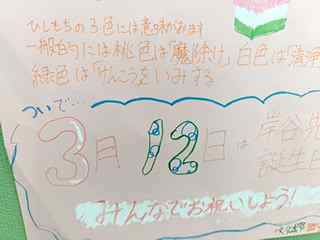 ひしもちの3色には意味があります
一般的には桃色は「魔除け」白色は「清浄
緑色は「けんこうをいみする
ついで…
3月12日は岸谷先
誕生日
みんなでお祝いしよう!